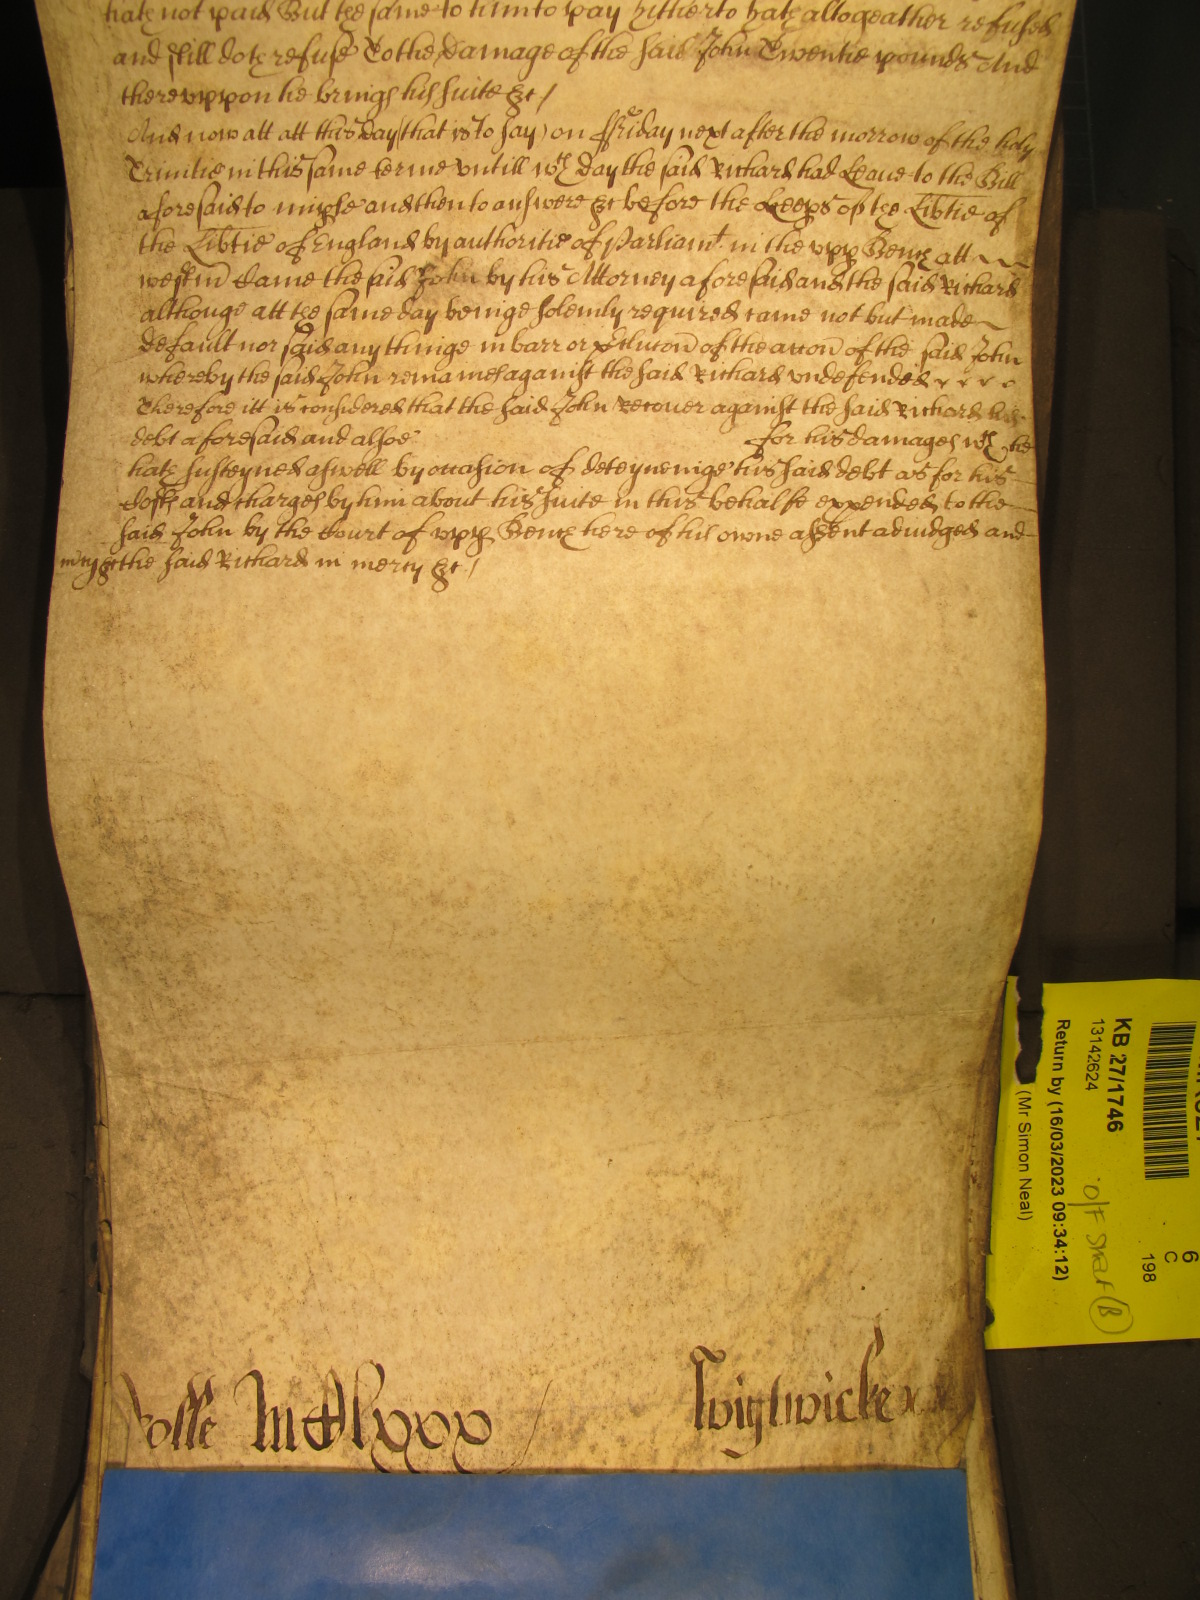 hath not paid But the same to him to pay hitherto hath altogeather refused
and still doth refuse To the damage of the said John Twentie pounds And
thereuppon he brings his suite &c /
And now att att this day (that is to say) on ffriday next after the morrow of the holy
Trinitie in this same terme untill wch day the said Richard had Leave to the Bill
aforesaid to imple and then to answere &c before the Keeps of the Libtie of
the Libtie of England by authoritie of Parliamt in the upp Bench att
westm Came the said John by his Attorney aforesaid and the said Richard
althouge att the same day beinge solemly required came not but made
default nor said any thinge in barr or of the accon of the said John
whereby the said John remaines against the said Richard undefended
Therefore itt is considered that the said John recover against the said Richard his
debt aforesaid and alsoe for his damages wch he
hath susteyned aswell by occasion of deteyneinge his said debt as for his
Costs and charges by him about his suite in this behalfe expended to the
said John by the Court of upp Bench here of his owne assent adiudged and
mcy &c the said Richard in mercy &c /
Wightwicke
KB 27/1746
13142624
Return by (16/03/2023 09:34:12)
(Mr Simon Neal)
6
C
198
O/F
B